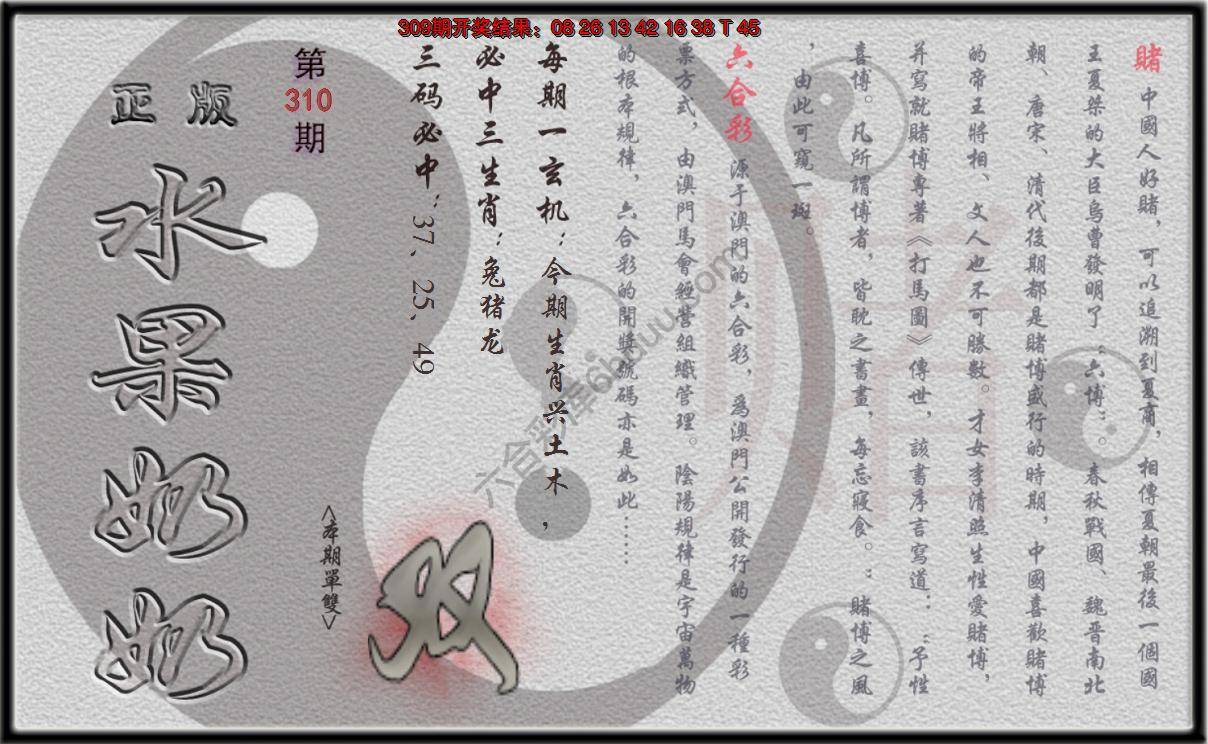 309期开奖结果：08 26 13 42 16 38 T 45
賭 中國人好賭，可以追溯到夏商，相傳夏朝最後一個國
王夏桀的大臣烏曹發明了“六博”。春秋戰國、魏晋南北
朝、唐宋、清代後期都是賭博盛行的時期，中國喜歡賭博
的帝王將相、文人也不可勝數。才女李清照生性愛賭博，
并寫就賭博專著《打馬圖》傳世，該書序言寫道：“予性
喜博。凡所謂博者，皆耽之晝，每忘寢食。：賭博之風
，由此可窺一斑。
六合彩 源于澳門的六合彩，爲澳門公開發行的一種彩
票方式，由澳門馬會經營組織管理。陰陽規律是宇宙萬物
的根本規律，六合彩的開獎號碼亦是如此……
每期一玄机：今期生肖兴土木，
必中三生肖：兔猪龙
三码必中：37、25、49
双
<本期單雙>
第
310
期
正版
水果奶奶
赌
六合彩库6hduu.com